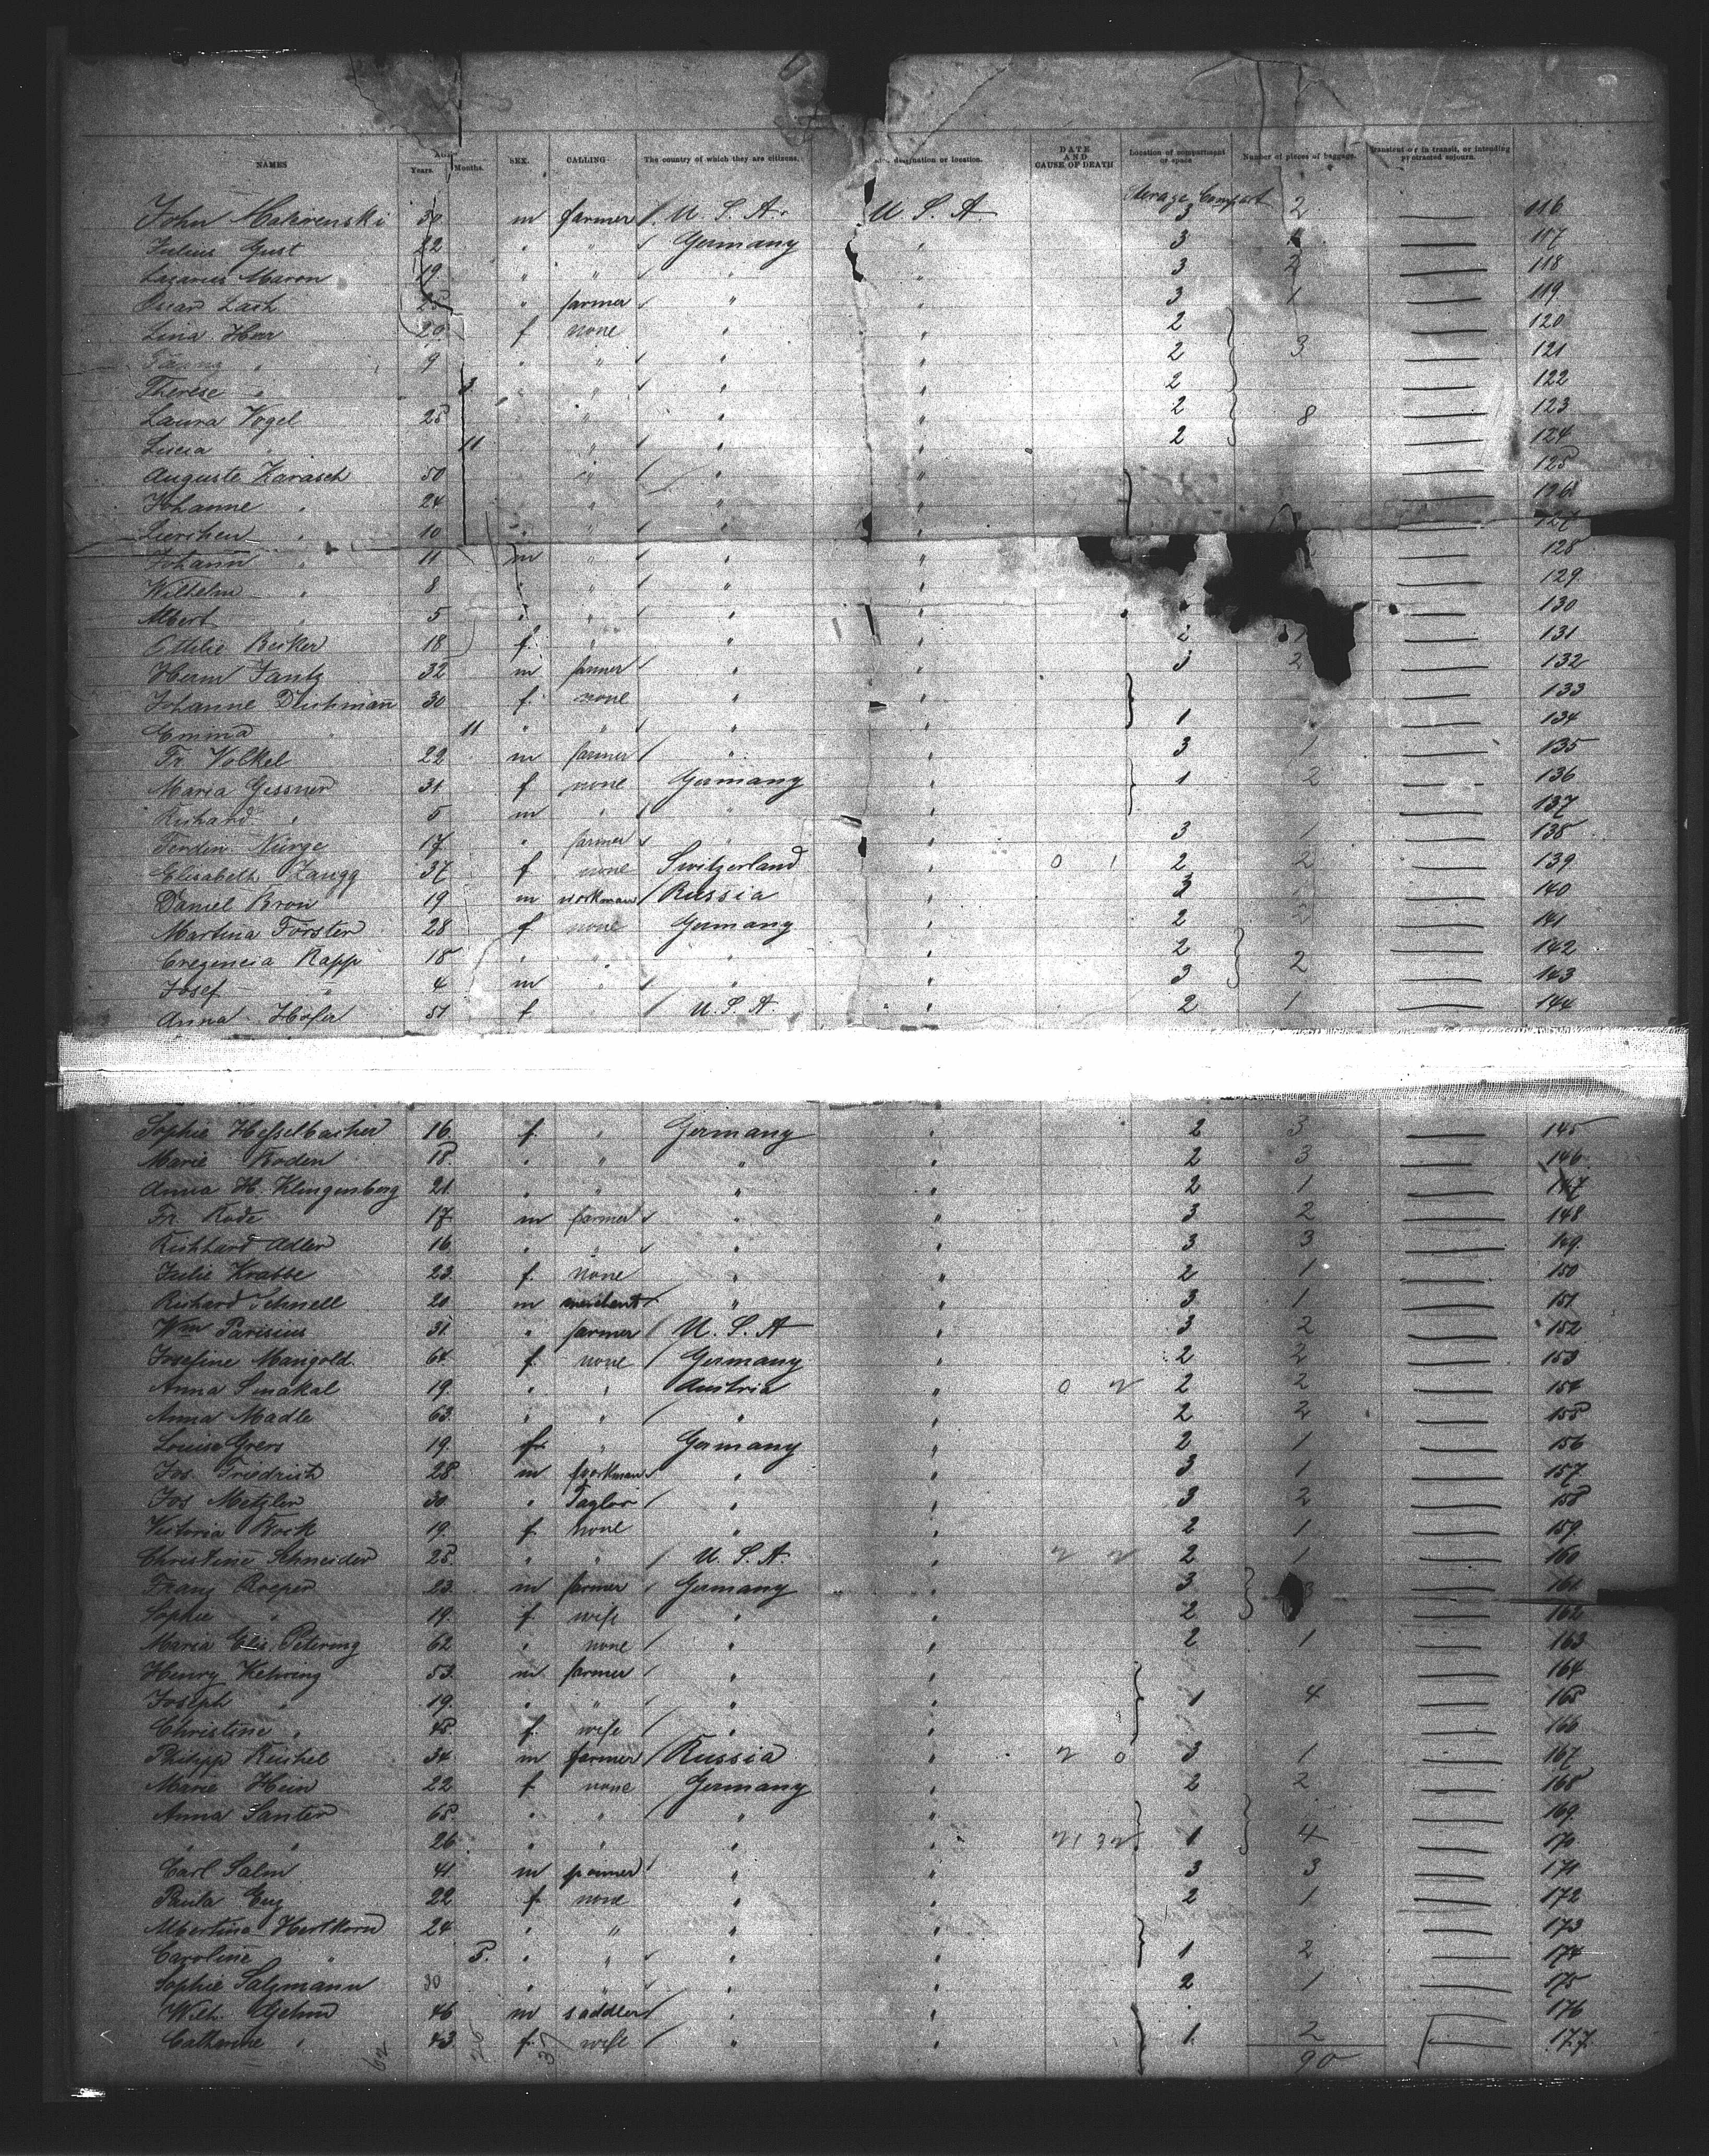 NAMES Years. Months. SEX. CALLING The country of which they are citizens. destination or location. DATE AND CAUSE OF DEATH Location of compartment or space Number of pieces of baggage. Transient or in transit, or intending protracted sojourn.
Compart
John 50 m farmer U. S. A. U. S. A. 3 2 116
Julius Gust 22 " " Germany " 3 117
Lazarus Maron 19 " " " " 3 2 118
Oscar Lash farmer " " 3 1 119
Lina 20 f none " " 2 120
9 " " " " 2 3 121
Therese " " " " 2 122
Laura Vogel 25 " " " 2 8 123
Lucia " 11 " " " 2 124
Auguste Karasch 50 " " " 125
Johanne " 24 " " " 126
10 " " " " 127
Johann " 11 m " " " 128
Wilhelm " 8 " " " 129
Albert 5 " " " " 130
Ottilie Becker 18 f. " " " 2 1 131
Herm Jantz 32 m farmer " " 3 2 132
Johanne 30 f. none " " 133
Emma 11 " " " " 1 134
Fr. Volkel 22 m farmer " " 3 1 135
Maria Gessner 31 f none Germany " 1 2 136
Richard " 5 m " " " 137
Ferdin. Nürge 17 " farmer " " 3 1 138
Elisabeth Zaugg 37 f none Switzerland " 0 1 2 2 139
Daniel Kron 19 m workman Russia " 3 140
Martina Forster 28 f none Germany " 2 2 141
Cregencia Rapp 18 " " " " 2 2 142
Josef " 4 m " " " 3 143
Anna Hofer 51 f " U. S. A. " 2 1 144
Sophie Hesselbacher 16 f. " Germany " 2 3 145
Marie Roden 18 " " " " 2 3 146
Anna H. Klingenberg 21 " " " " 2 1 147
Fr. Rode 17 m farmer " " 3 2 148
Richhard Adler 16 " " " " 3 3 149
Julie Krabbe 23 f. none " " 2 1 150
Richard Schnell 20 m merchant " " 3 1 151
Wm Parisius 31 " farmer U. S. A " 3 2 152
Josefine Marigold 64 f. none Germany " 2 2 153
Anna Smakal 19 " " Austria " 0 2 2 2 154
Anna Madle 63 " " " " 2 2 155
Louise Grers 19 " Germany " 2 1 156
Jos. Friedrich 28 m workman " " 3 1 157
Jos Metzler 30 " Taylor " " 3 2 158
Victoria Rock 19 f. none " " 2 1 159
Christine Schneider 25 " " U. S. A. " 2 2 2 1 160
Franz Roeper 23 m farmer Germany " 3 3 161
Sophie " 19 f. wife " " 2 162
Maria Elis. Petering 62 " none " " 2 1 163
Henry Kehring 53 m farmer " " 164
Joseph " 19 " " " " 1 4 165
Christine " 45 f. wife " " 166
Philipp Reichel 34 m farmer Russia " 2 0 3 1 167
Marie Hein 22 f none Germany " 2 2 168
Anna Santer 65 " " " " 169
" " 26 " " " " 1 4 170
Carl Salm 41 m farmer " " 3 3 171
Paula 22 f none " " 2 1 172
Albertina Hertkorn 24 " " " " 173
Caroline " 5 " " " " 1 2 174
Sophie Salzmann 30 " " " " 2 1 175
Wilh. Gehm 46 m saddler " " 176
Catharine " 43 f. wife " " 1 2 177
90